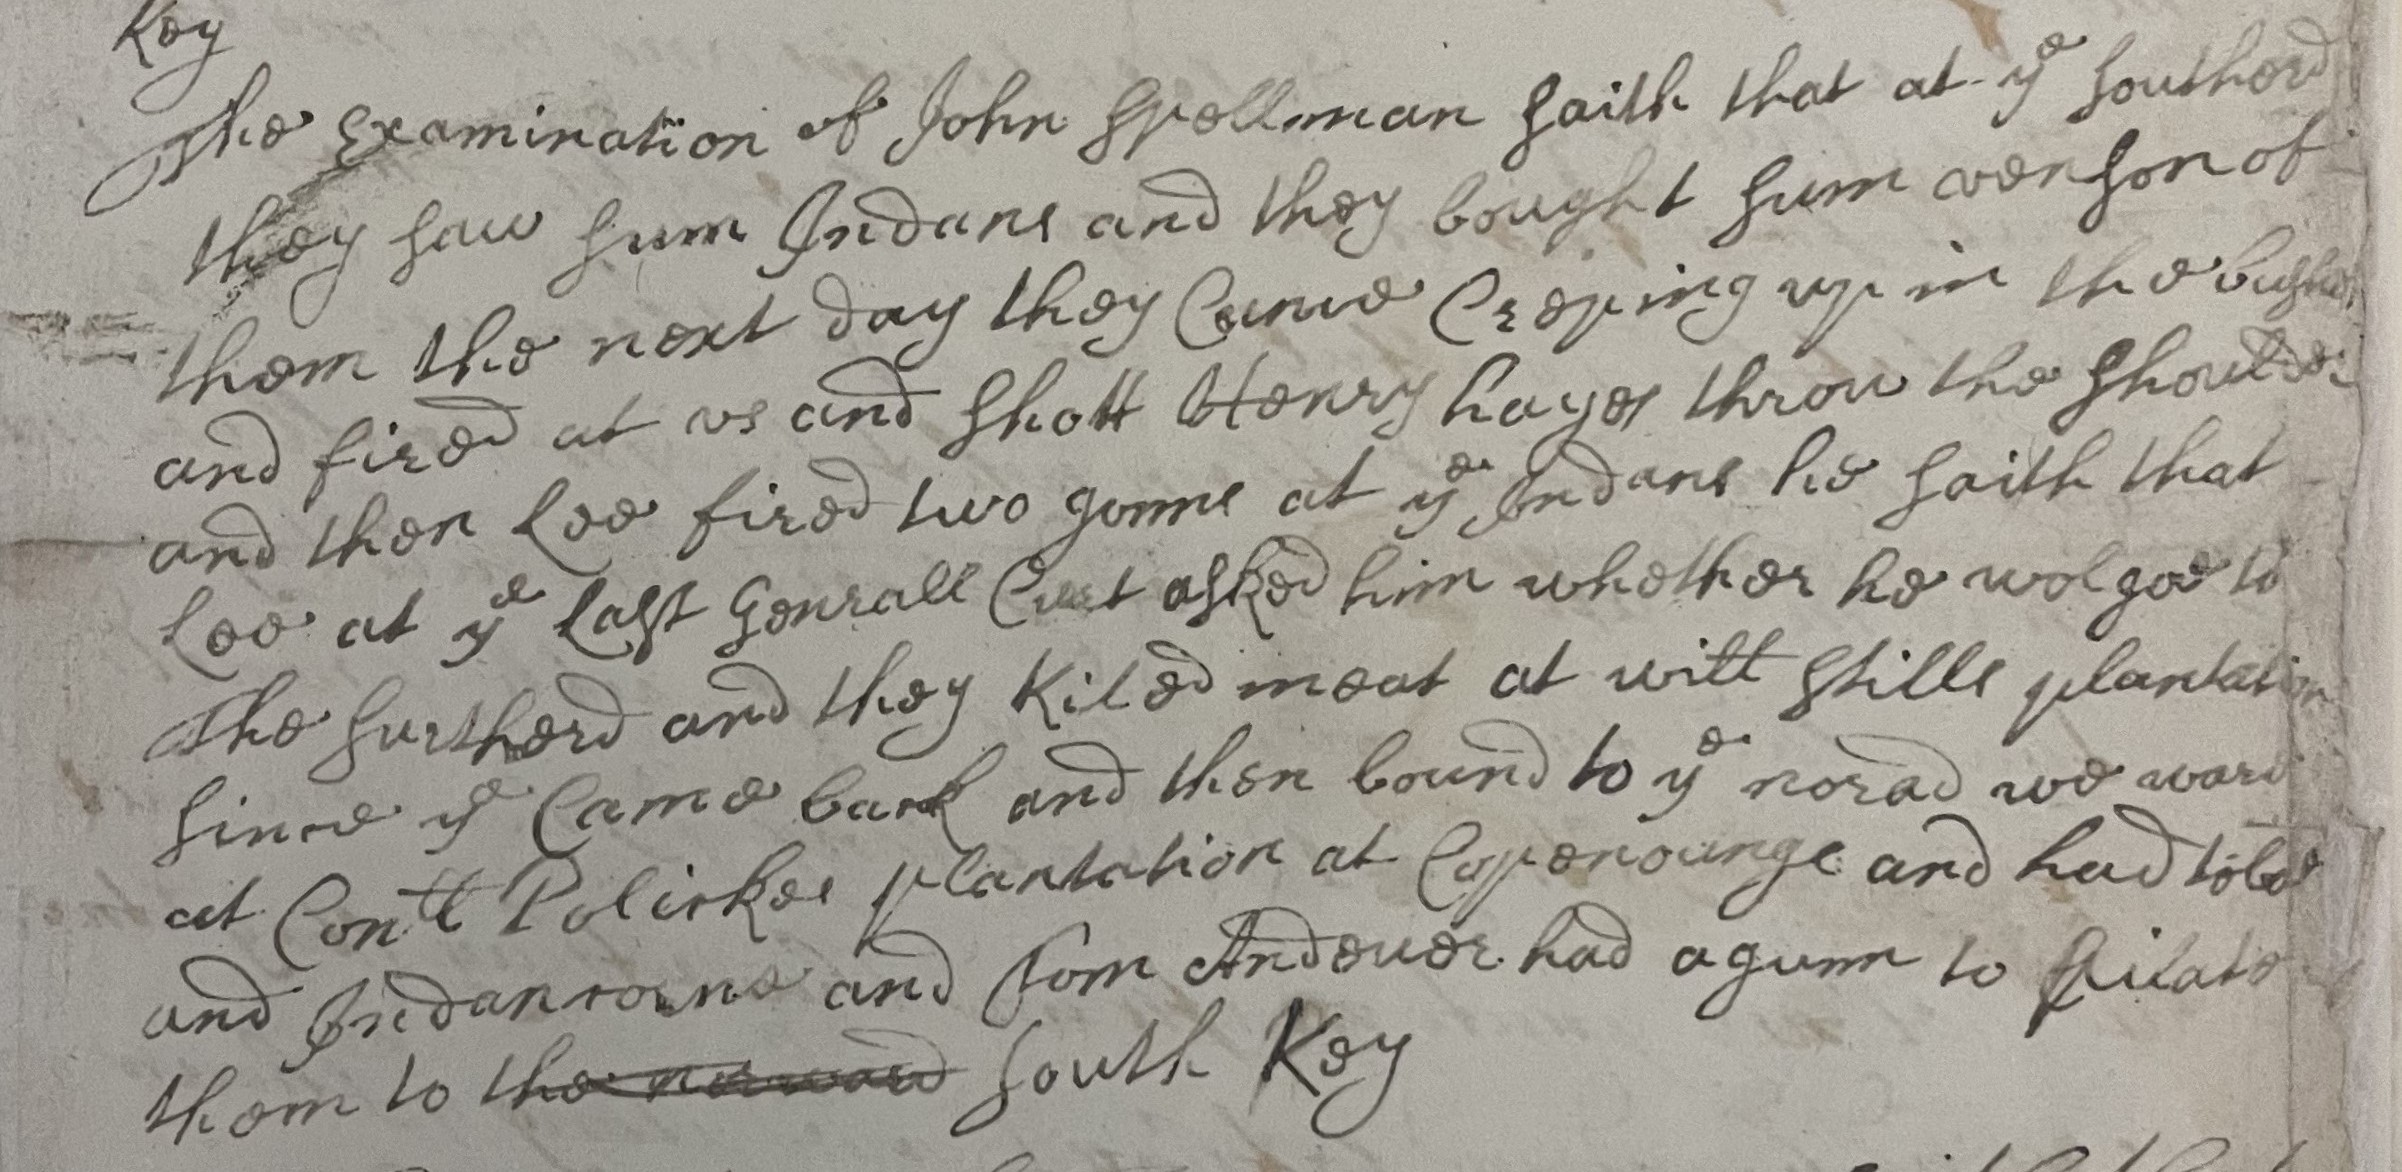 Key
The Examination of John Spellman saith that at ye Southerd
they saw sum Indans and they bought sum venson of
them the next day they Came Creping up in the bushes
and fired at us and shott Henry hayes throu the shoulder
and then Lee fired two gonns at ye Indans he saith that
Lee at ye Last Genrall Curt asked him whether he wol goe to
The surtherd and they Kiled meat at will stills plantation
since ye Came back and then bound to ye norad we ward
at Conll Polickes plantation at Copenounge and had
and Indan corne and Tom Andever had a gunn to Pilate
them to the norward South Key